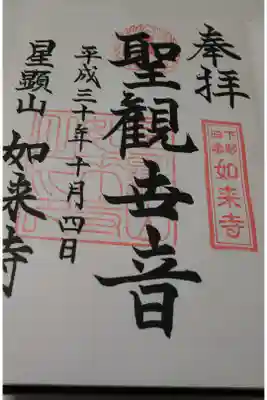 奉拝
下野
如来寺
聖観世音
平成三十年十月四日
星顕山
如来寺